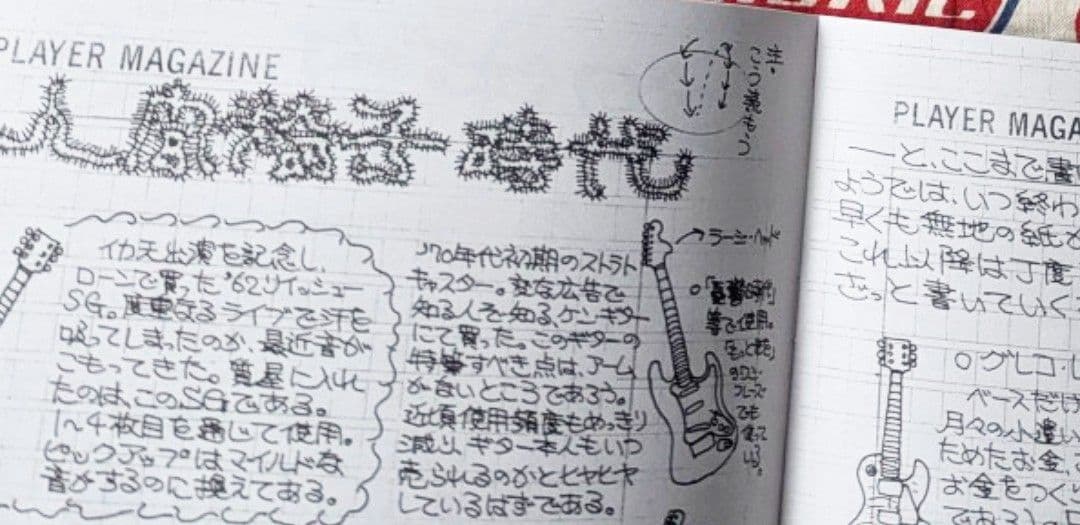 PLAYER MAGAZINE
人間椅子
注・こう見せよう
イカ天出演を記念し、
ローンで買った'62リイッシュー
SG。度重なるライブで汗を
吸ってしまったのか、最近音が
こもってきた。質屋に入れ
たのは、このSGである。
1〜4枚目を通じて使用。
ピックアップはマイルドな
音がするのに換えてある。
'70年代初期のストラト
キャスター。変な広告で
知る人ぞ知る、ケンギター
にて買った。このギターの
特筆すべき点は、アーム
がないところであろう。
近頃使用頻度もめっきり
減り、ギター本人もいつ
売られるのかとヒヤヒヤ
しているはずである。
ラージ・ヘッド
等で使用。
でも使っている。
PLAYER MAGA
―と、ここまで書
ようでは、いつ終わ
早くも無地の紙
これ以降は丁度
ざっと書いていく
○グレコ・レ
ベースだけ
月々の小遣い
ためたお金
お金をつく